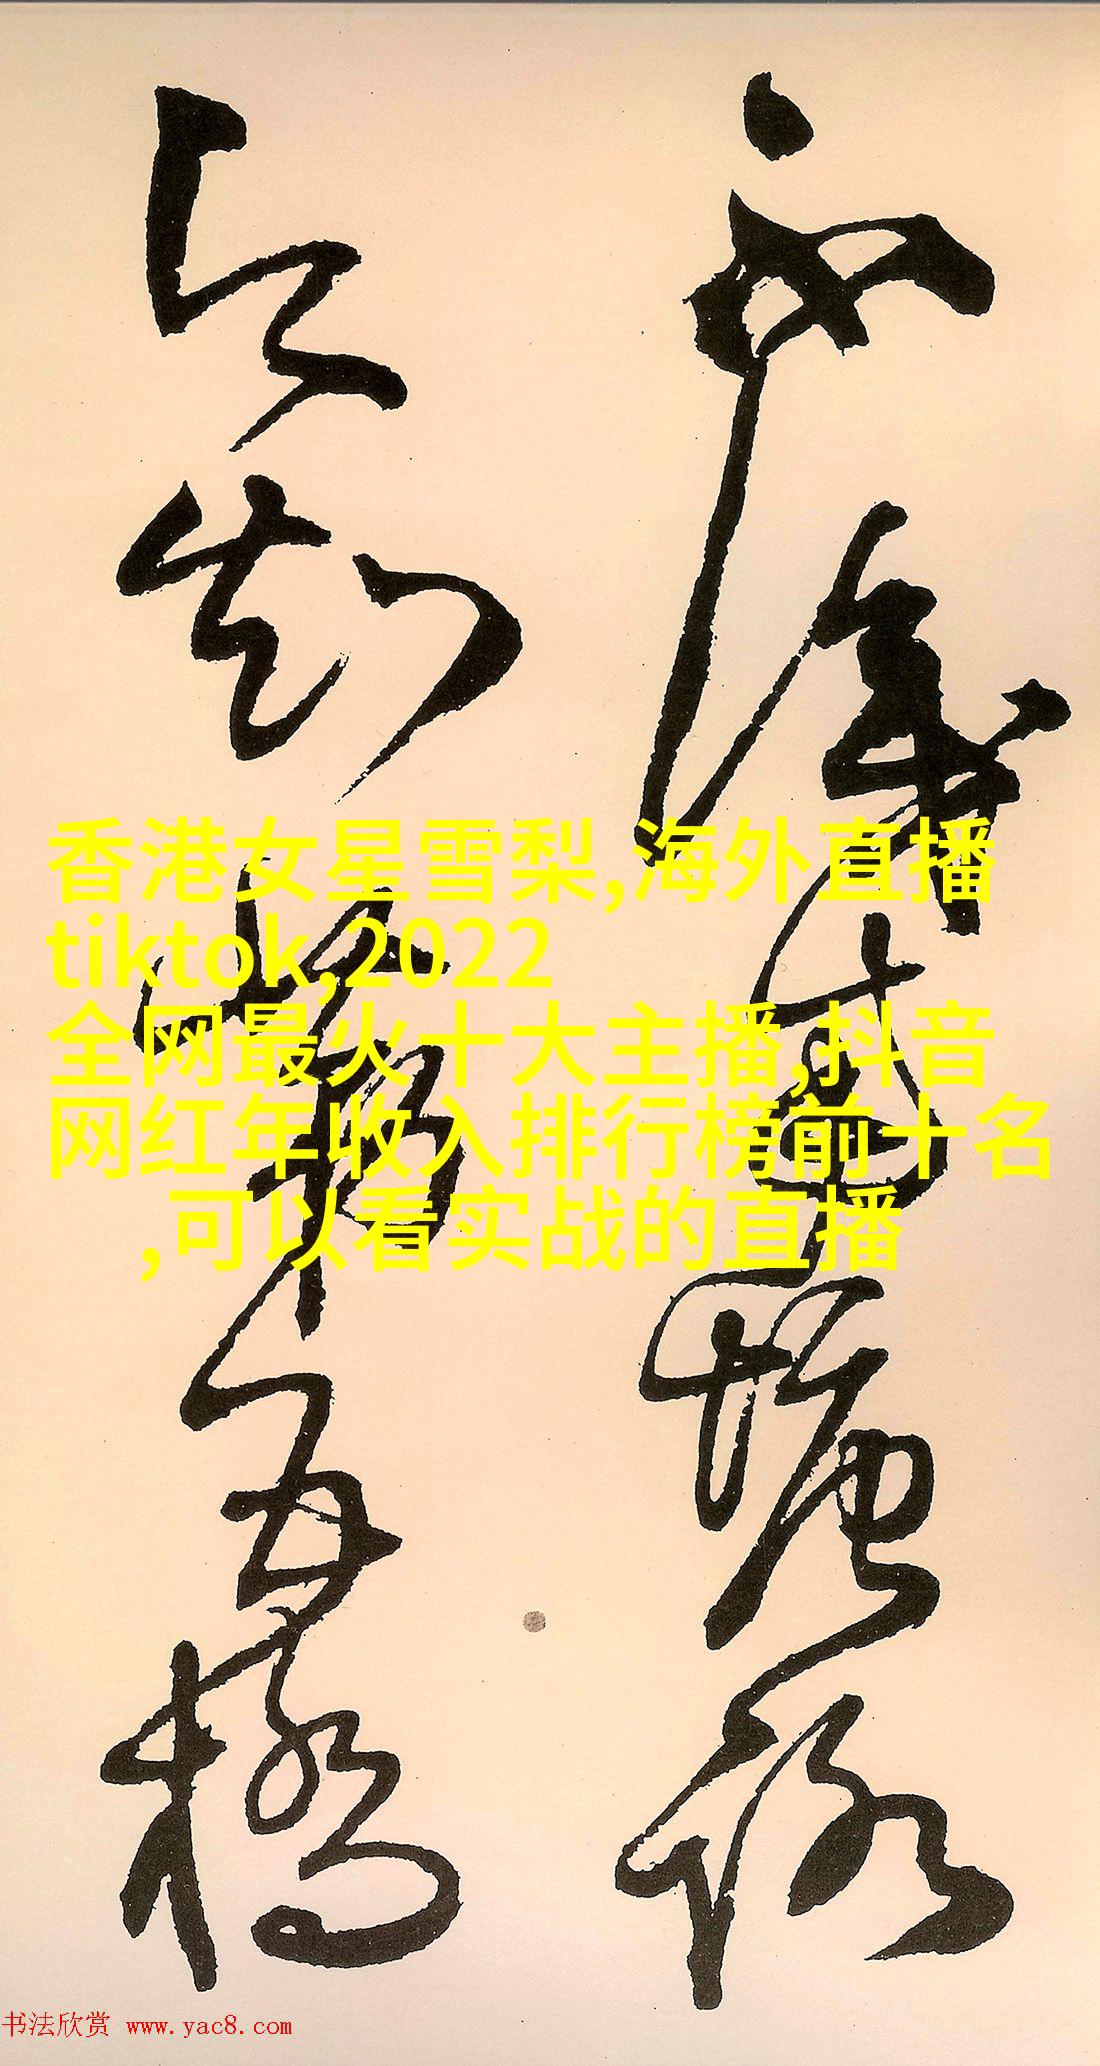 不識南塘路
今知第五橋
香港女星雪梨,海外直播
tiktok,2022
全网最火十大主播,抖音
网红年收入排行榜前十名
,可以看实战的直播
书法欣赏 www.yac8.com